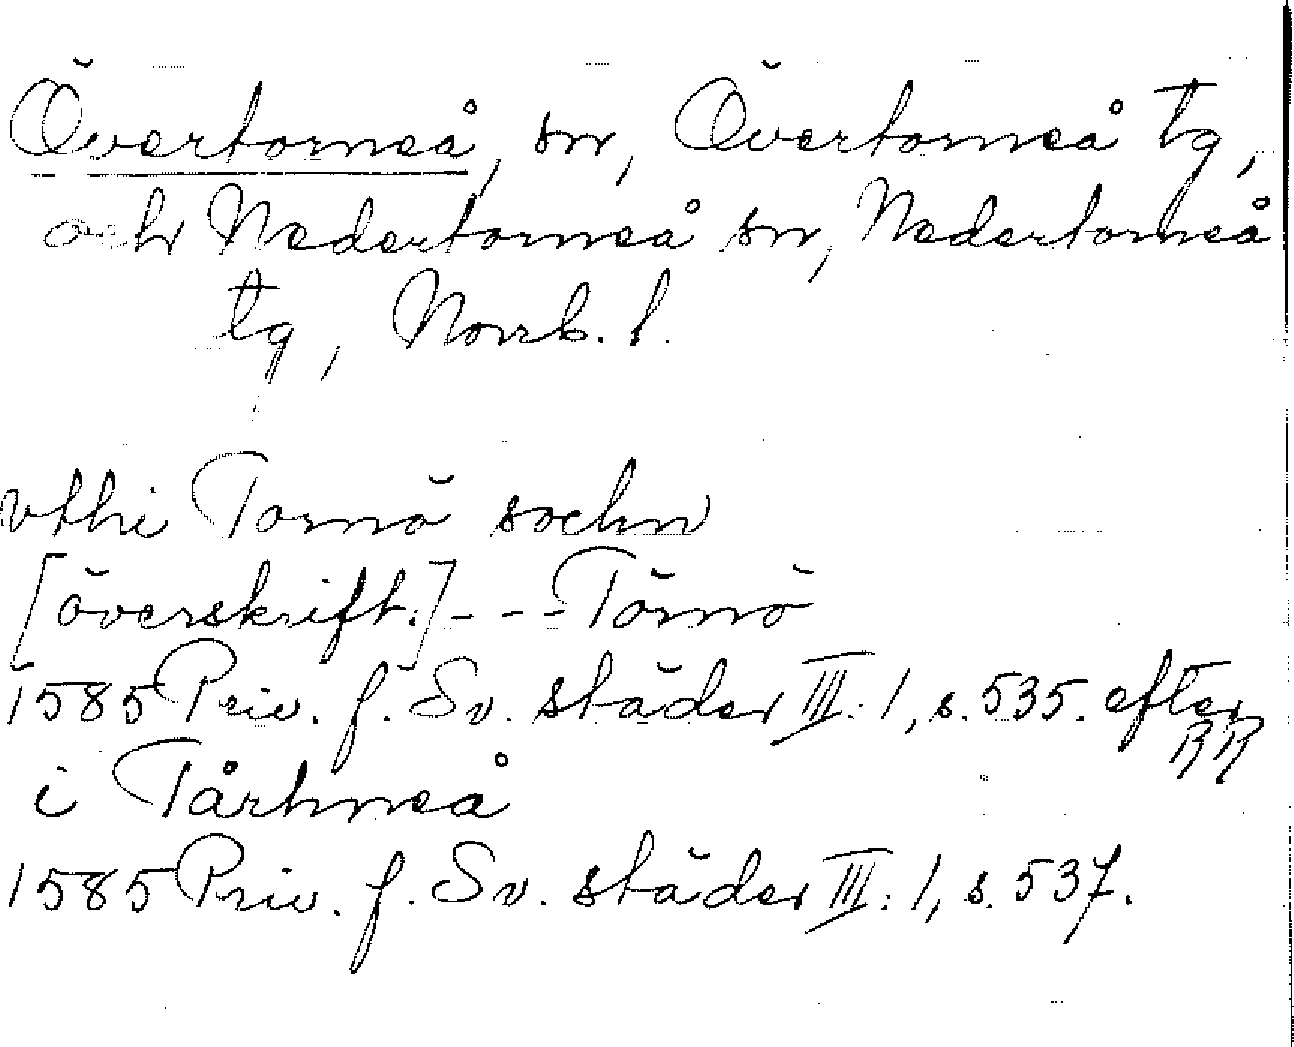 Övertorneå, sn, Övertorneå tg,
och Nedertorneå sn, Nedertorneå
tg, Norrb. l.
vthi Tornö sochn
[överskift.] - - - Törnö
1585 Priv. f. Sv. städer III: 1, s. 535. efter
RR
i Tårhneå
1585 Priv. f. Sv. städer III: 1, s. 537.